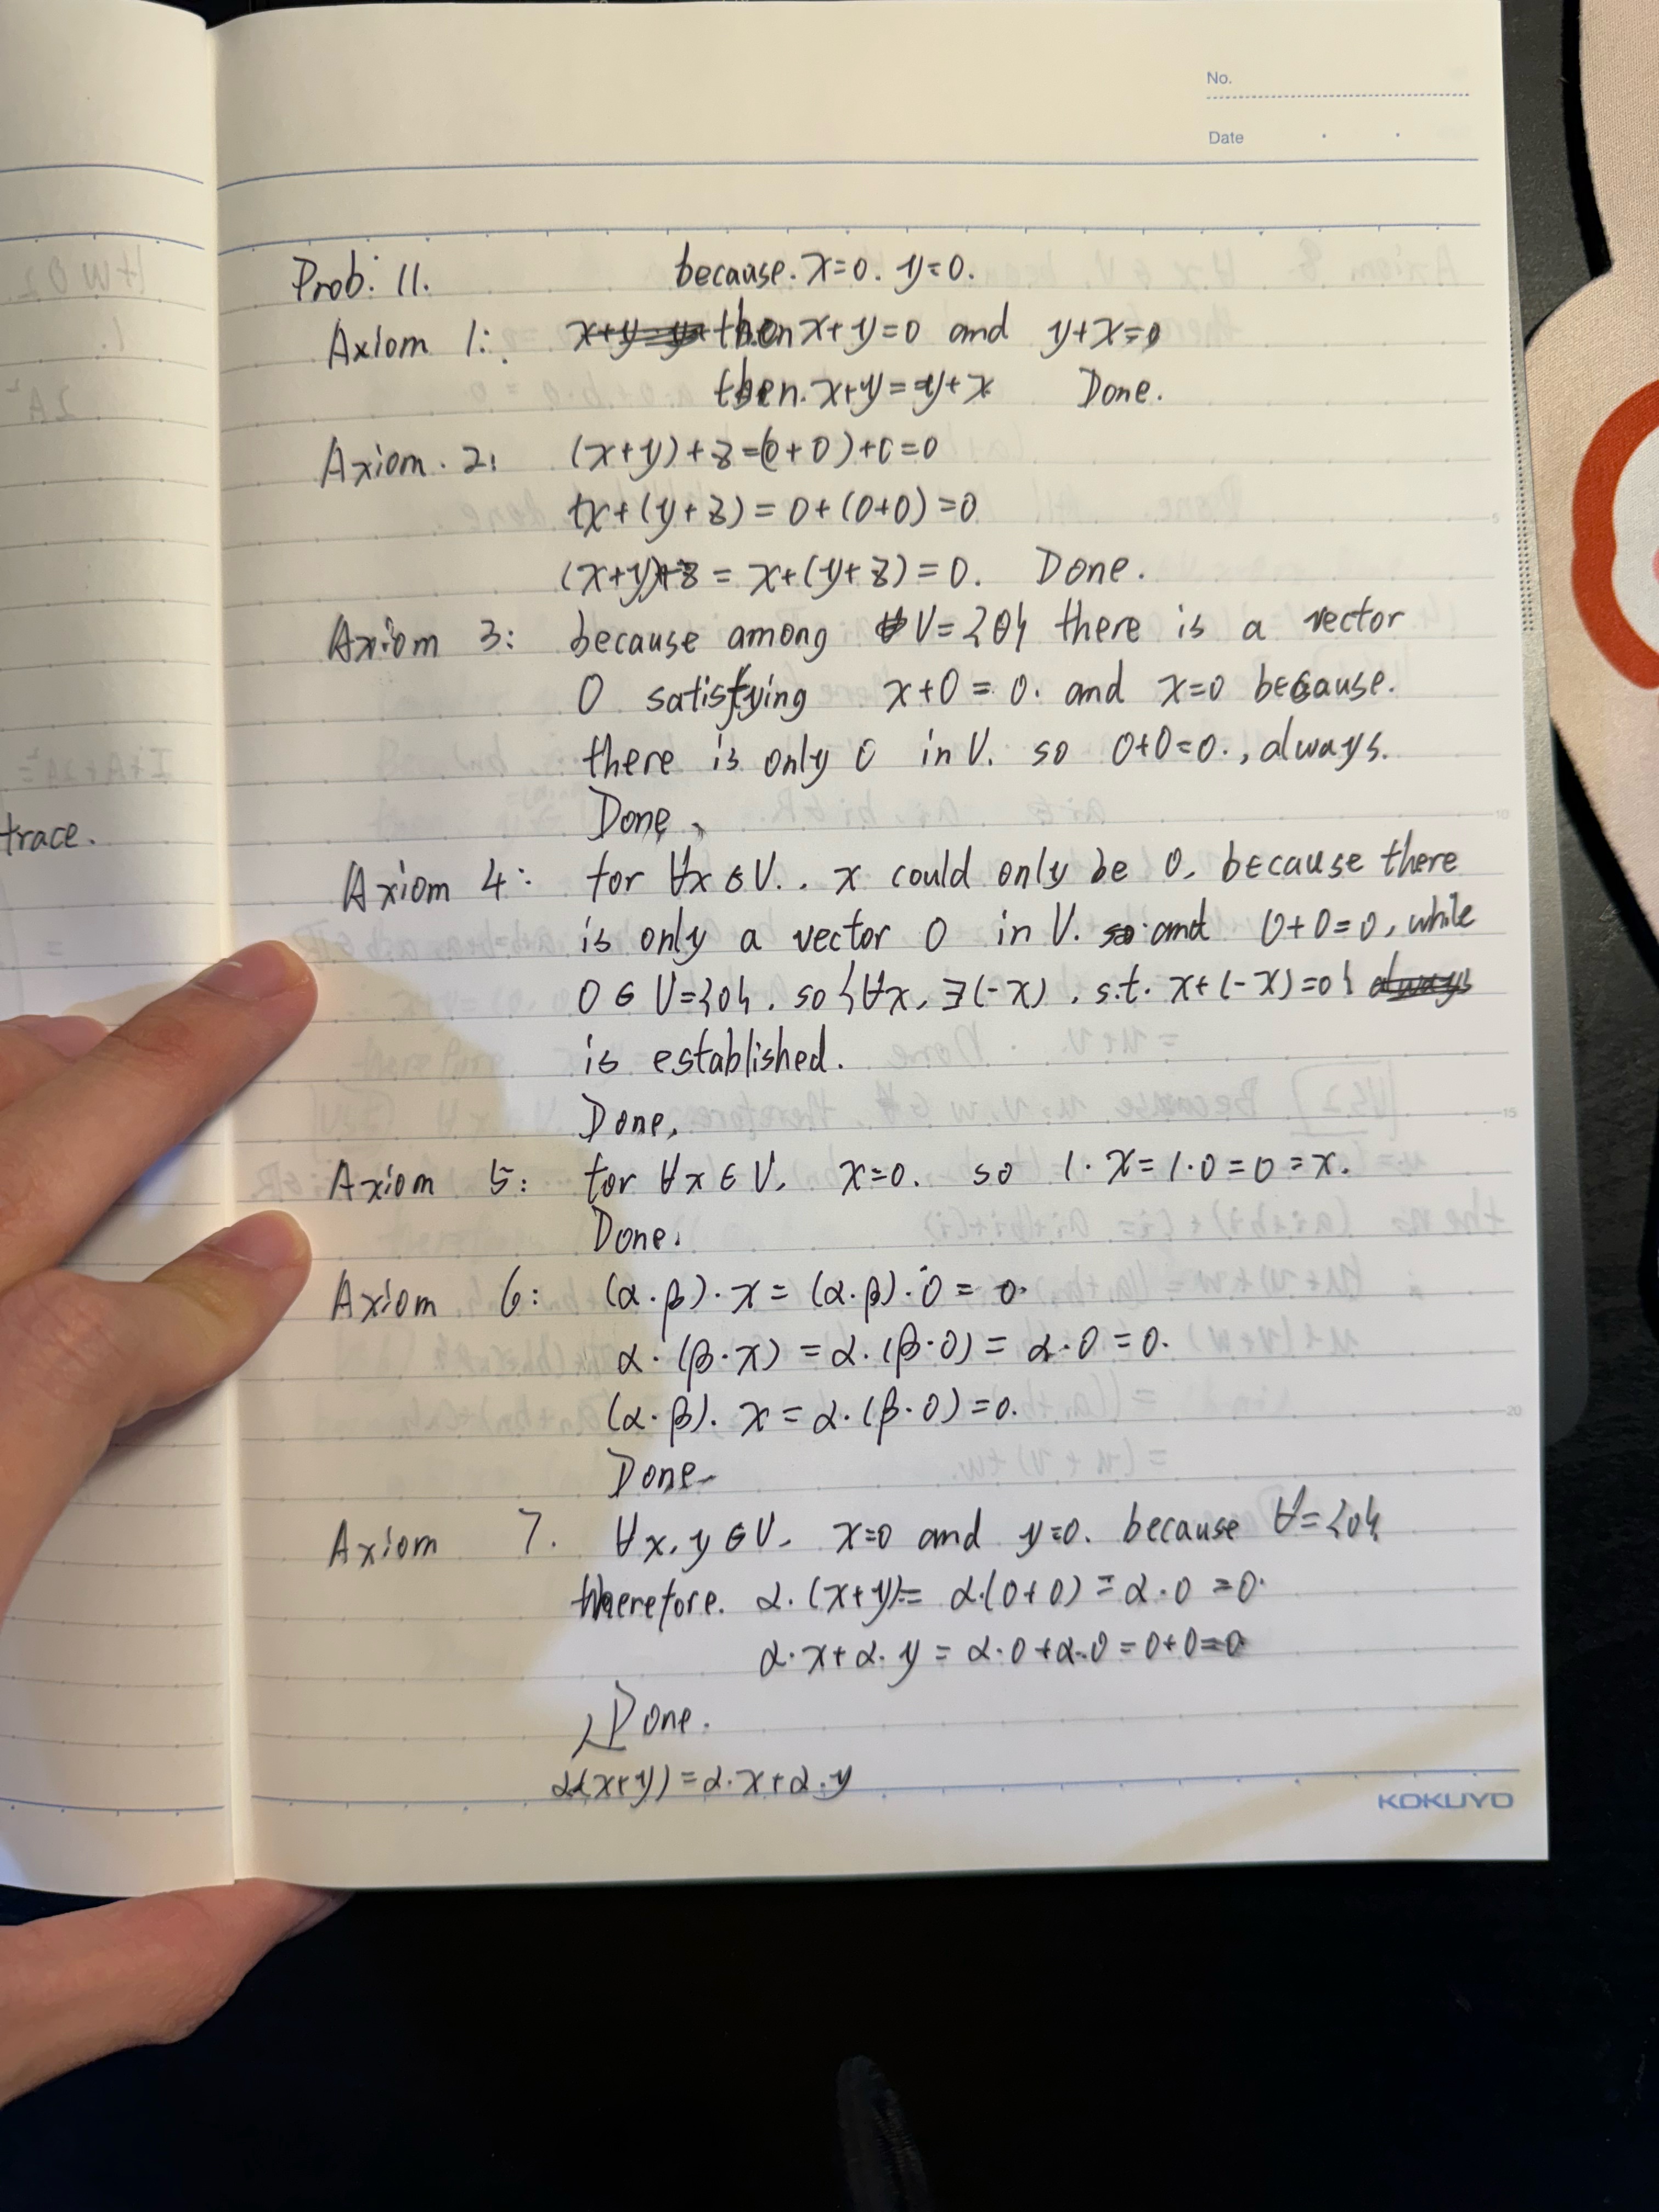 No.
Date
Prob. 11. because. x=0. y=0.
Axiom 1: then x+y=0 and y+x=0
then. x+y=y+x Done.
Axiom. 2: (x+y)+z=(0+0)+0=0
x+(y+z)=0+(0+0)=0
(x+y)+z = x+(y+z)=0. Done.
Axiom 3: because among V={0} there is a vector
0 satisfying x+0=0. and x=0 because.
there is only 0 in V. so 0+0=0., always.
Done.
trace.
Axiom 4: for ∀x∈V., x could only be 0, because there
is only a vector 0 in V. and 0+0=0, while
0∈V={0}. so {∀x, ∃(-x), s.t. x+(-x)=0}
is established.
Done.
Axiom 5: for ∀x∈V, x=0. so 1·x=1·0=0=x.
Done.
Axiom 6: (α·β)·x=(α·β)·0=0.
α·(β·x)=α·(β·0)=α·0=0.
(α·β)·x=α·(β·0)=0.
Done.
Axiom 7. ∀x,y∈V, x=0 and y=0. because V={0}
therefore. α·(x+y)=α·(0+0)=α·0=0.
α·x+α·y=α·0+α·0=0+0=0
Done.
α(x+y)=α·x+α·y
KOKUYO